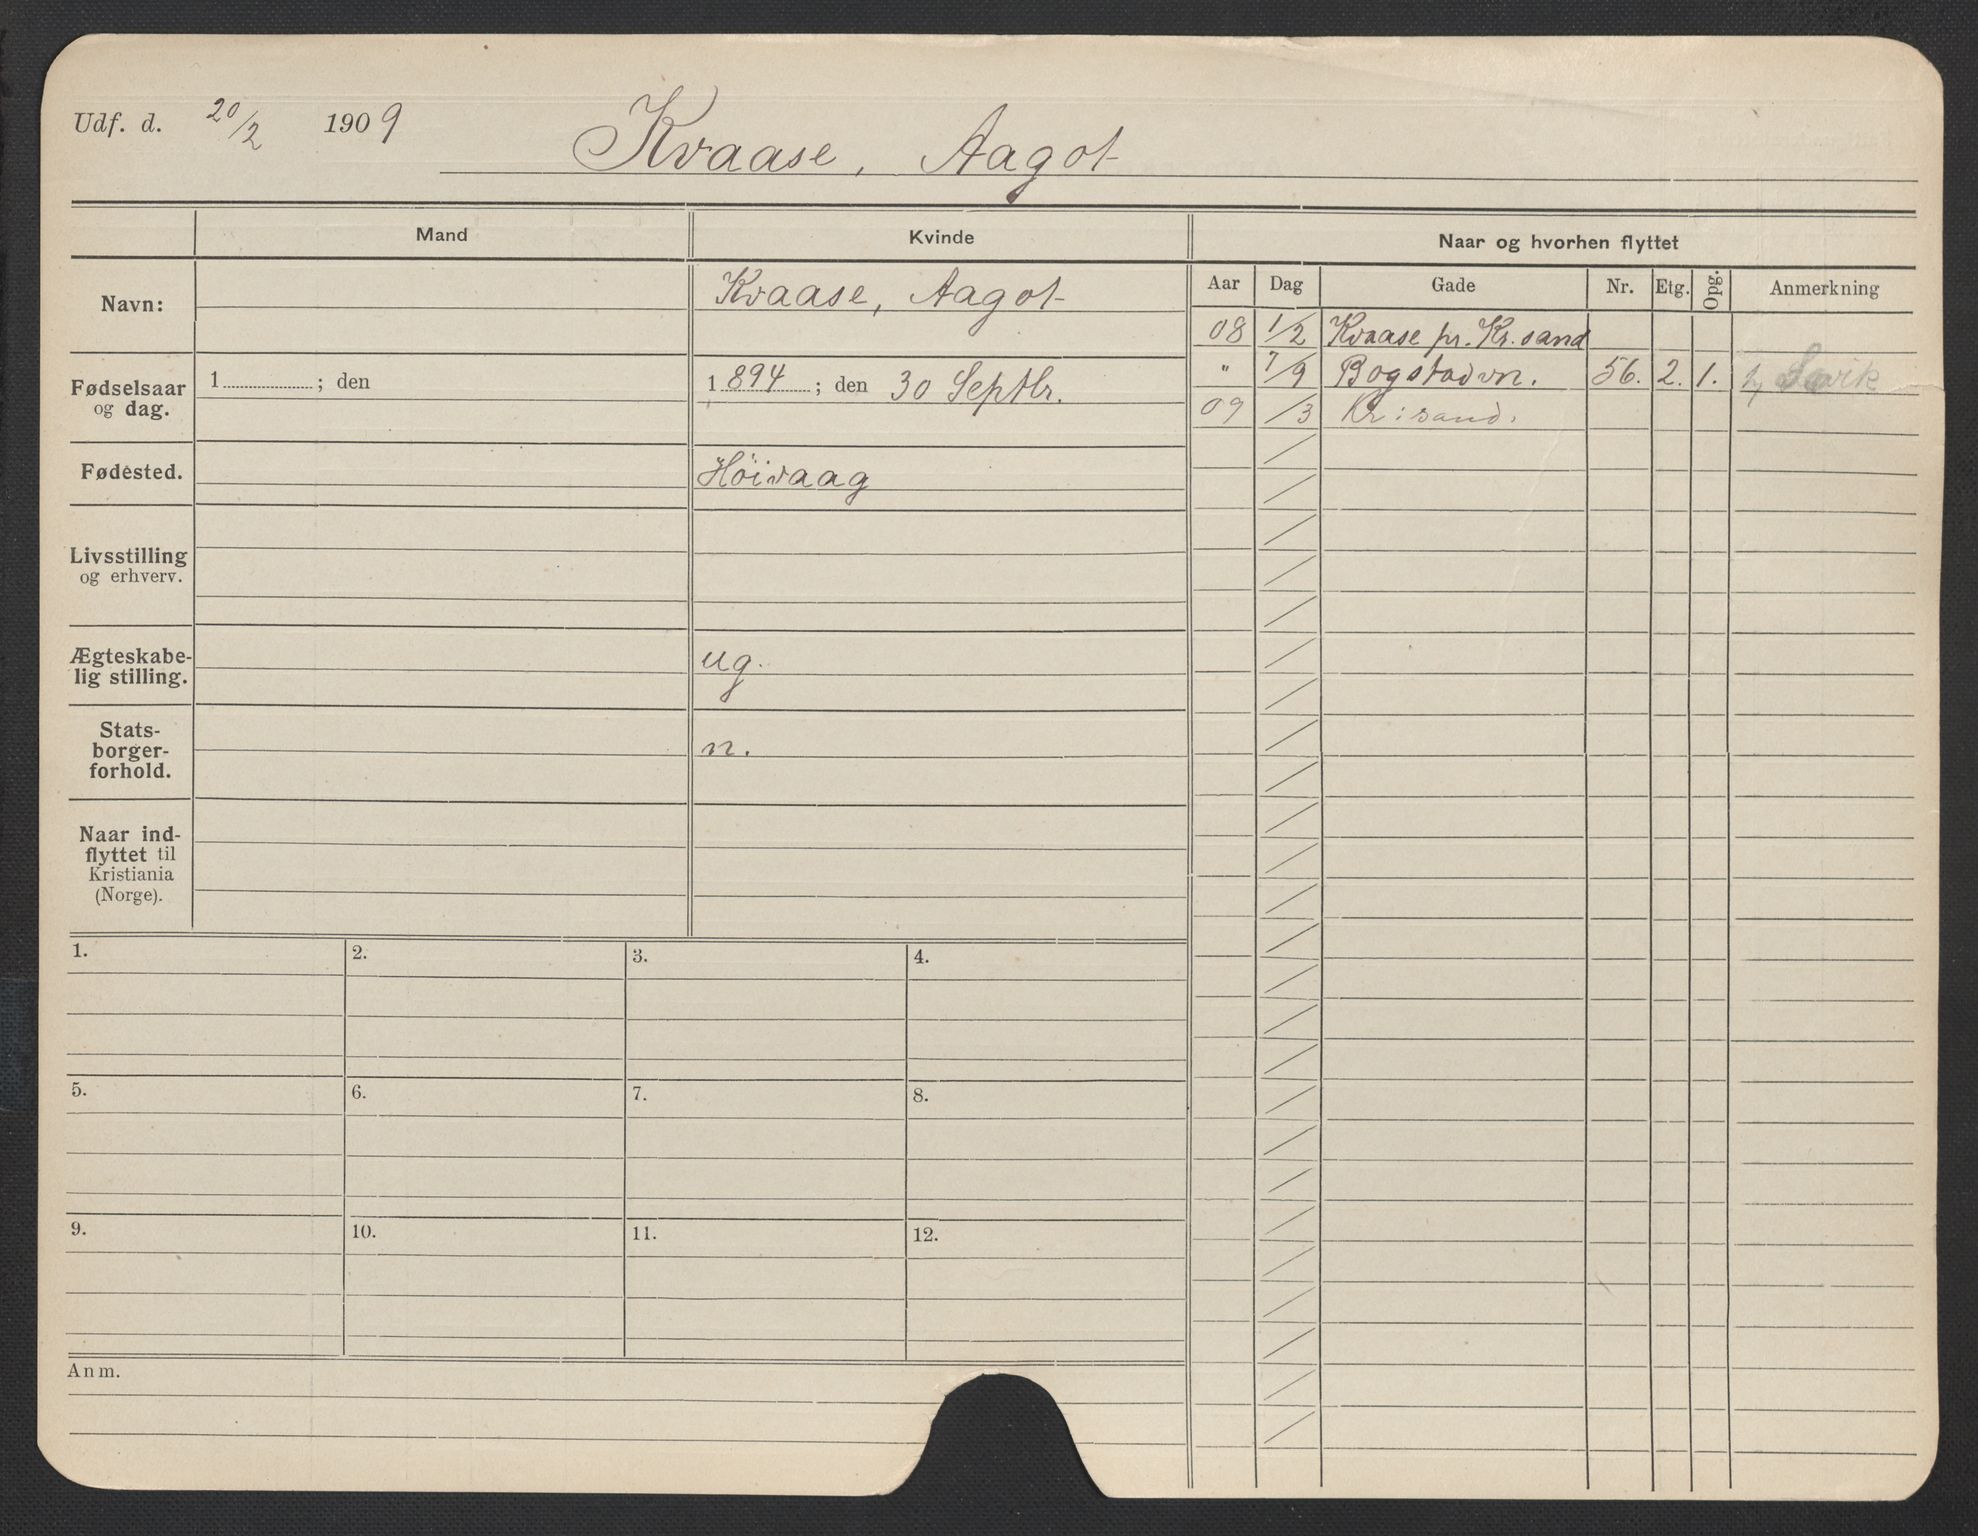 Udf. d. 20/2 1909 Kvaase, Aagot
Mand Kvinde Naar og hvorhen flyttet
Aar Dag Gade Nr. Etg. Opg. Anmerkning
Navn: Kvaase, Aagot
08 1/2 Kvaase pr. Kr.sand
Fødselsaar og dag. 1 ; den 1894 ; den 30 Septbr.
" 7/9 Bogstadvn. 56. 2. 1.
09 /3 Kr:sand.
Fødested. Høivaag
Livsstilling
og erhverv.
Ægteskabe-
lig stilling. ug.
Stats-
borger-
forhold. n.
Naar ind-
flyttet til
Kristiania
(Norge).
1. 2. 3. 4.
5. 6. 7. 8.
9. 10. 11. 12.
Anm.